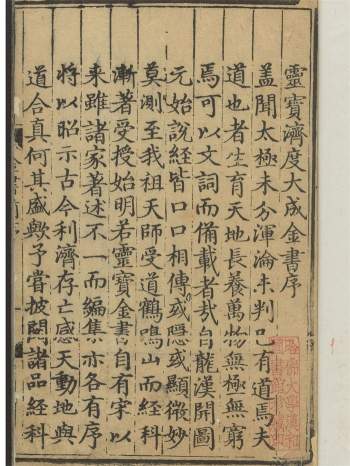 靈寶濟度大成金書序
蓋聞太極未分渾淪未判已有道焉夫
道也者生育天地長養萬物無極無窮
焉可以文詞而備載者哉自龍漢開圖
元始說經皆口口相傳或隱或顯微妙
莫測至我祖天師受道鶴鳴山而經科
漸著受授始明若靈寶金書自有宋以
來雖諸家著述不一而編集亦各有序
將以昭示古今利濟存亡感天動地與
道合真何其盛歟予嘗披閱諸品經科